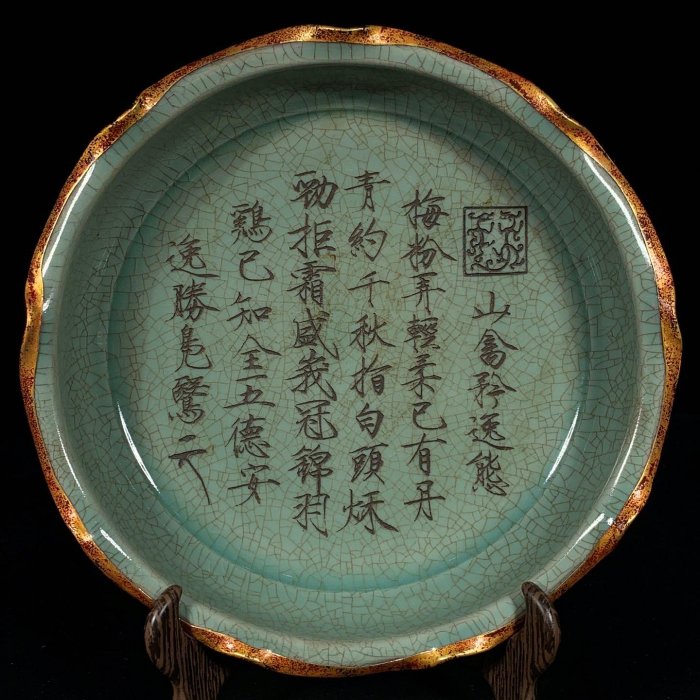 山禽矜逸態
梅粉弄輕柔已有丹
青約千秋指白頭秋
勁拒霜盛莪冠錦羽
鷄已知全五德安
逸勝鳧鷖